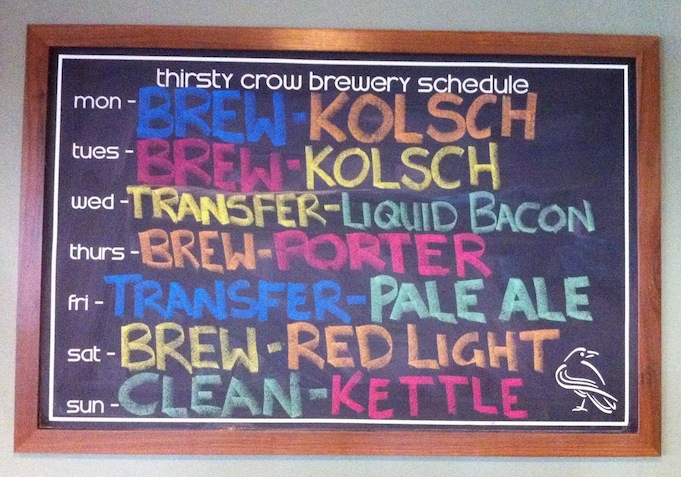 thirsty crow brewery schedule
mon - BREW - KOLSCH
tues - BREW - KOLSCH
wed - TRANSFER - LIQUID BACON
thurs - BREW - PORTER
fri - TRANSFER - PALE ALE
sat - BREW - RED LIGHT
sun - CLEAN - KETTLE